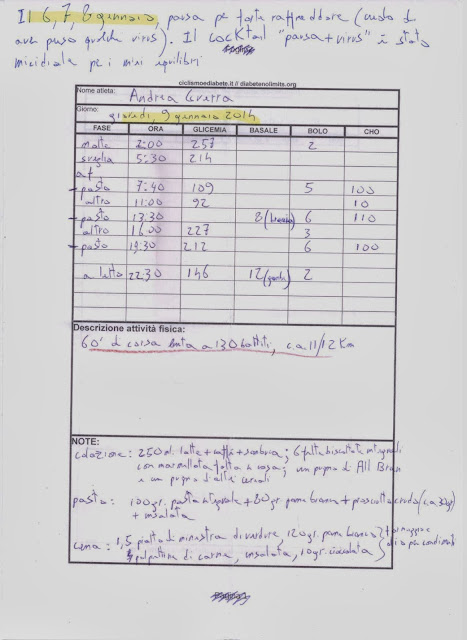 Il 6, 7, 8 gennaio, pausa per forte raffreddore (credo di
aver preso qualche virus). Il cocktail "pausa + virus" è stato
micidiale per i miei equilibri
ciclismoediabete.it // diabetenolimits.org
Nome atleta: Andrea
Giorno: giovedì, 9 gennaio 2014
FASE ORA GLICEMIA BASALE BOLO CHO
notte 2:00 257 2
sveglia 5:30 214
att.
pasto 7:40 109 5 100
altro 11:00 92 10
pasto 13.30 8 6 110
altro 16:00 227 3
pasto 19:30 212 6 100
a letto 22:30 146 12 2
Descrizione attività fisica:
60' di corsa lenta a 130 battiti, c.a 11/12 Km
NOTE:
colazione: 250 ml latte + caffè + ; 6 fette biscottate integrali
con marmellata fatta in casa; un pugno di All Bran
e un pugno d'altri cereali
pasto: 100gr. pasta integrale + 80gr pane bianco + prosciutto crudo (c.a 30g)
+ insalata
cena: 1,5 piatto di minestra di verdure, 120gr. pane bianco + formaggio
polpettine di carne, insalata, 10gr. cioccolata olio per condimenti